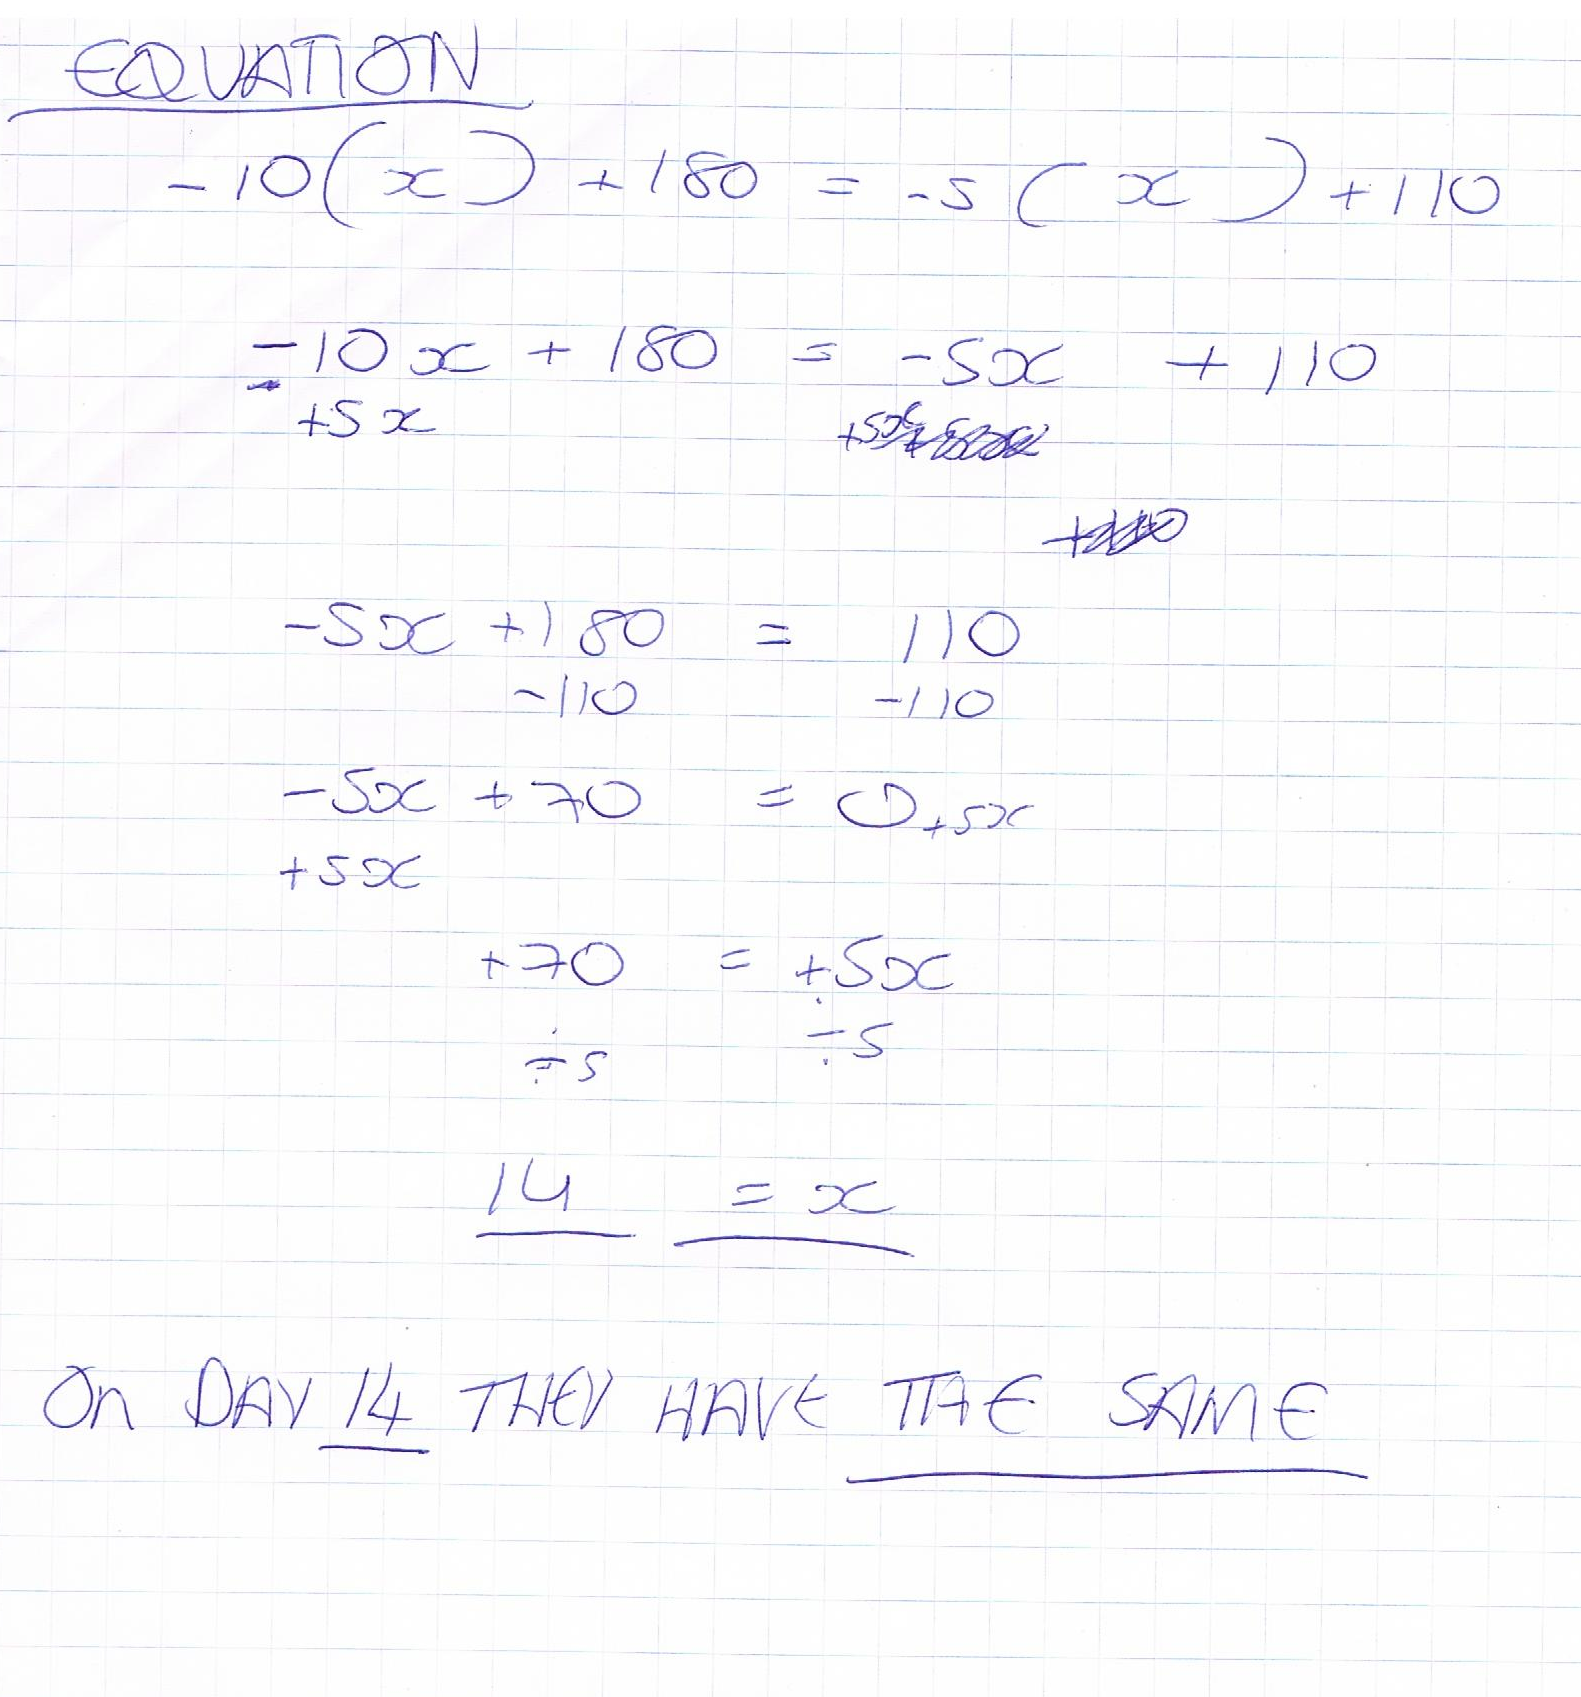 EQUATION
-10(x) +180 = -5(x) +110
-10x + 180 = -5x + 110
+5x +5x
-5x +180 = 110
-110 -110
-5x +70 = 0 +5x
+5x
+70 = +5x
÷5 ÷5
14 = x
On DAY 14 THEY HAVE THE SAME